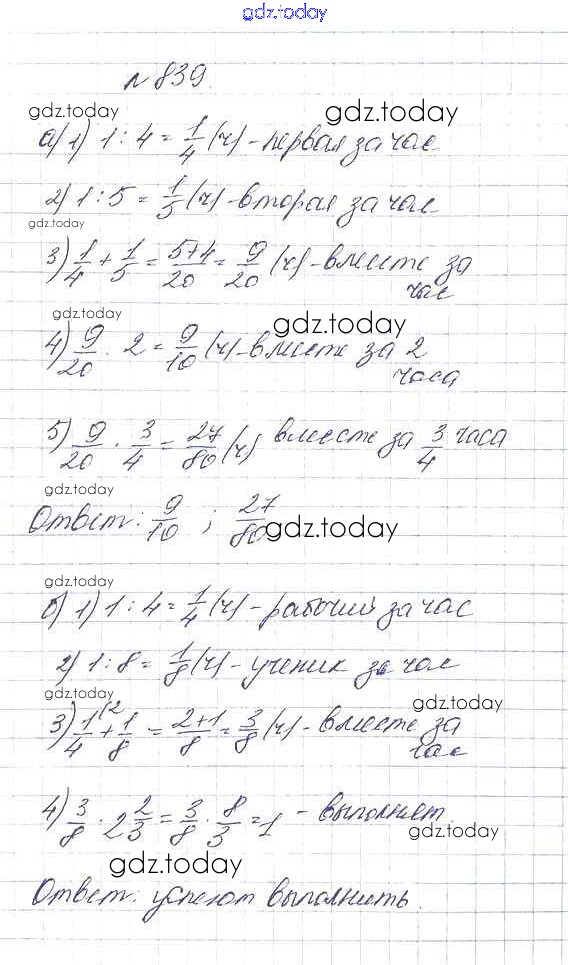 gdz.today
№ 839.
gdz.today gdz.today
а) 1) 1 : 4 = 1/4 (ч) - первая за час
2) 1 : 5 = 1/5 (ч) - вторая за час
gdz.today
3) 1/4 + 1/5 = 5+4/20 = 9/20 (ч) - вместе за
час
gdz.today gdz.today
4) 9/20 · 2 = 9/10 (ч) - вместе за 2
часа
5) 9/20 · 3/4 = 27/80 (ч) вместе за 3/4 часа
gdz.today
Ответ: 9/10 ; 27/80
gdz.today
gdz.today
б) 1) 1 : 4 = 1/4 (ч) - рабочий за час
2) 1 : 8 = 1/8 (ч) - ученик за час
gdz.today gdz.today
3) 1/4 (2 + 1/8 = 2+1/8 = 3/8 (ч) - вместе за
час
4) 3/8 · 2 2/3 = 3/8 · 8/3 = 1 - выполнят.
gdz.today
gdz.today
Ответ: успеют выполнить.